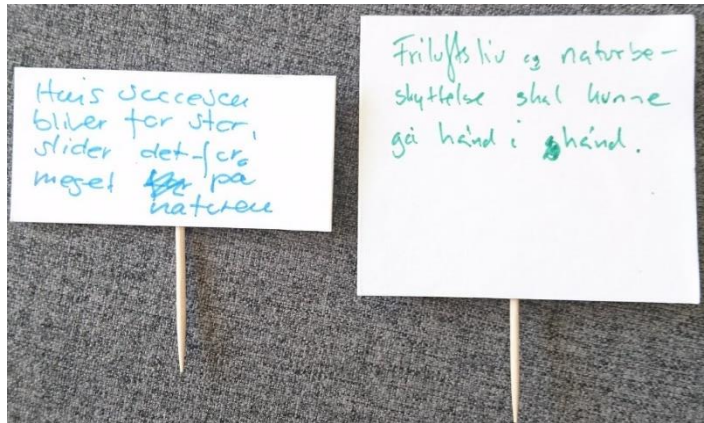 Hvis succesen
bliver for stor,
slider det for
meget på
naturen
Friluftsliv og naturbe-
skyttelse skal kunne
gå hånd i hånd.